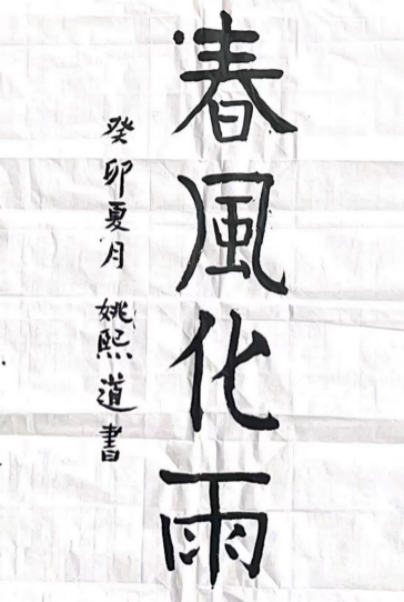 春風化雨
癸卯夏月 姚熙道書